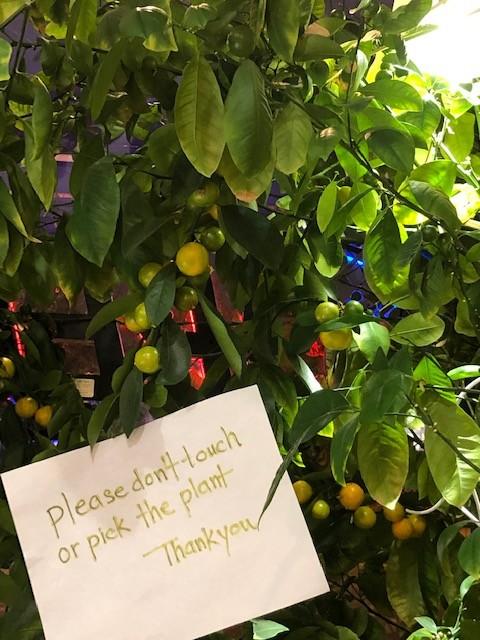 please don't touch
or pick the plant
Thank you